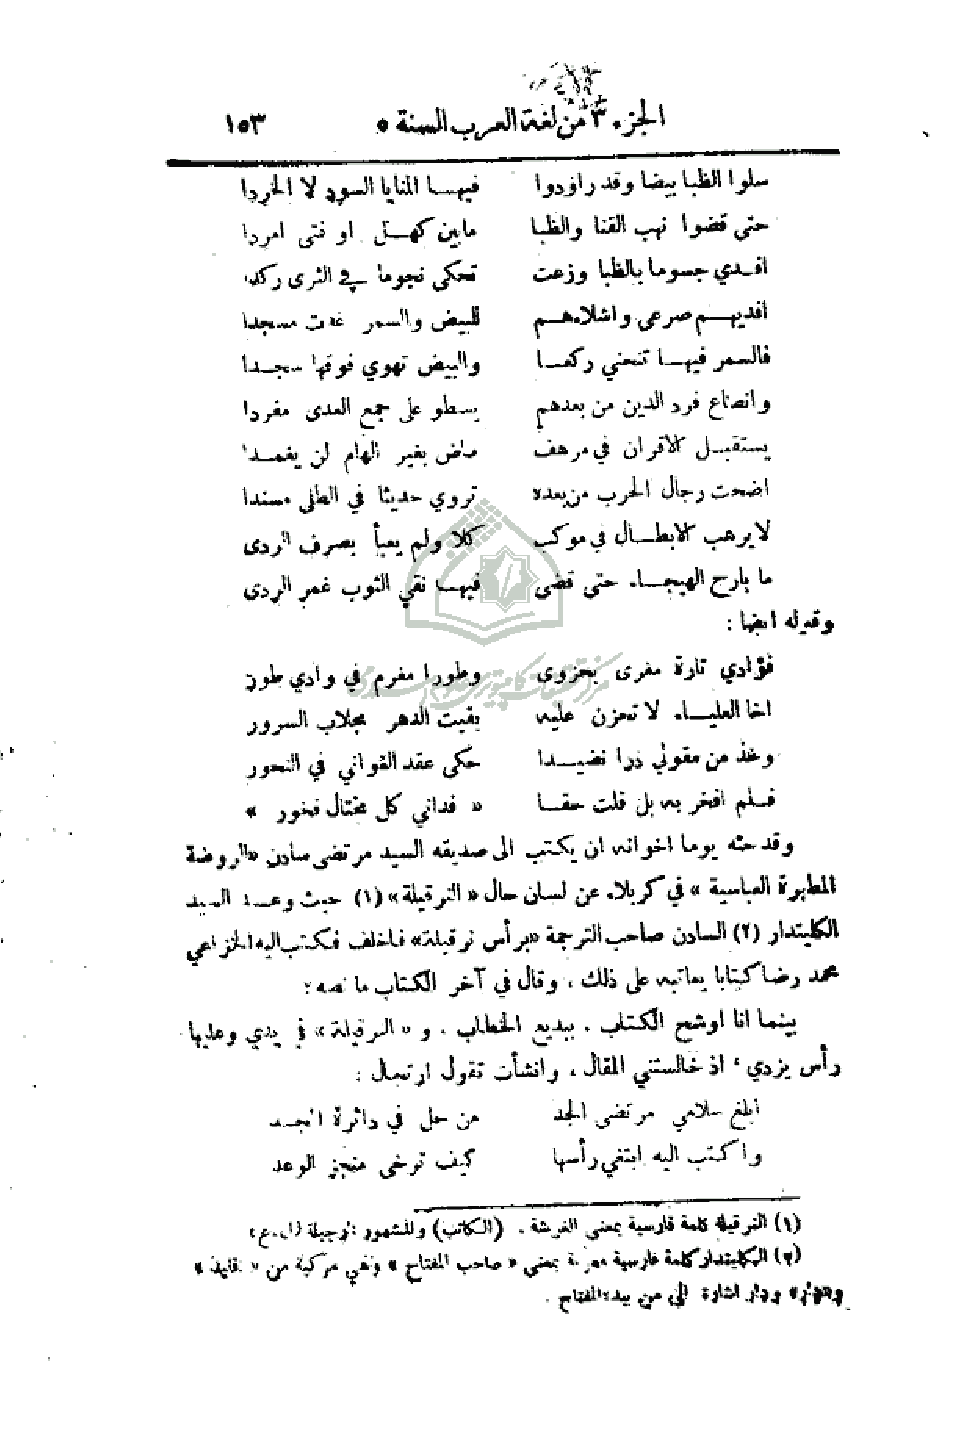 الجزء ٣ من لغة العرب السنة ٥ ١٥٣
سلوا الظبا بيضا وقد راودوا فيهـا المنايا السود لا الخردا
حتى قضوا نهب القنا والظبا مابين كهـل او فتى امردا
افـدي جسوما بالظبا وزعت تحكي نجوما في الثرى ركدا
افديهـم صرعى واشلاءهـم للبيض والسمر غدت مسجدا
فالسمر فيهـا تنحني ركعـا والبيض تهوي فوقها سجـدا
وانصاع فرد الدين من بعدهم يسطو على جمع العدى مفردا
يستقبـل الاقران في مرهف ماض بغير الهام لن يغمـدا
اضحت رجال الحرب من بعده تروي حديثا في الطلى مسندا
لا يرهب الابطـال في موكب كلا ولم يعبأ بصرف الردى
ما بارح الهيجـاء حتى قضى فيهـا نقي الثوب غمر الردى
وقوله ايضا :
فؤادي تارة مغرى بحزوى وطورا مغرم في وادي طور
اخا العليـاء لا تحزن عليه بقيت الدهر مجلاب السرور
وخذ من مقولي دررا نضيـدا حكى عقد الغواني في النحور
فـلم افخر به بل قلت حقـا « فداني كل مختال فخور »
وقد حثه يوما اخوانه ان يكتب الى صديقه السيد مرتضى سادن «الروضة
المطهرة العباسية » في كربلاء عن لسان حال « النرقيلة» (١) حيث وعـد السيد
الكليتدار (٢) السادن صاحب الترجمة «برأس نرقيلة» فاخلف فكتب اليه الخزاعي
محمد رضا كتابا يعاتبه على ذلك ، وقال في آخر الكتاب ما نصه :
بينما انا اوشح الكتاب . ببديع الخطاب . و « النرقيلة» في يدي وعليها
رأس يزدي ، اذ خالستني المقال ، وانشأت تقول ارتجال :
ابلغ سلامي مرتضى الجد من حل في دائرة المجـد
واكتب اليه ابتغي رأسها كيف توخى منجز الوعد
(١) النرقيلة كلمة فارسية بمعنى الفرشة . (الكاتب) والمشهور النرجيلة (ل.ع)
(٢) الكليتدار كلمة فارسية معربة بمعنى « صاحب المفتاح » وهي مركبة من «
ودار اشارة الى من بيده المفتاح .